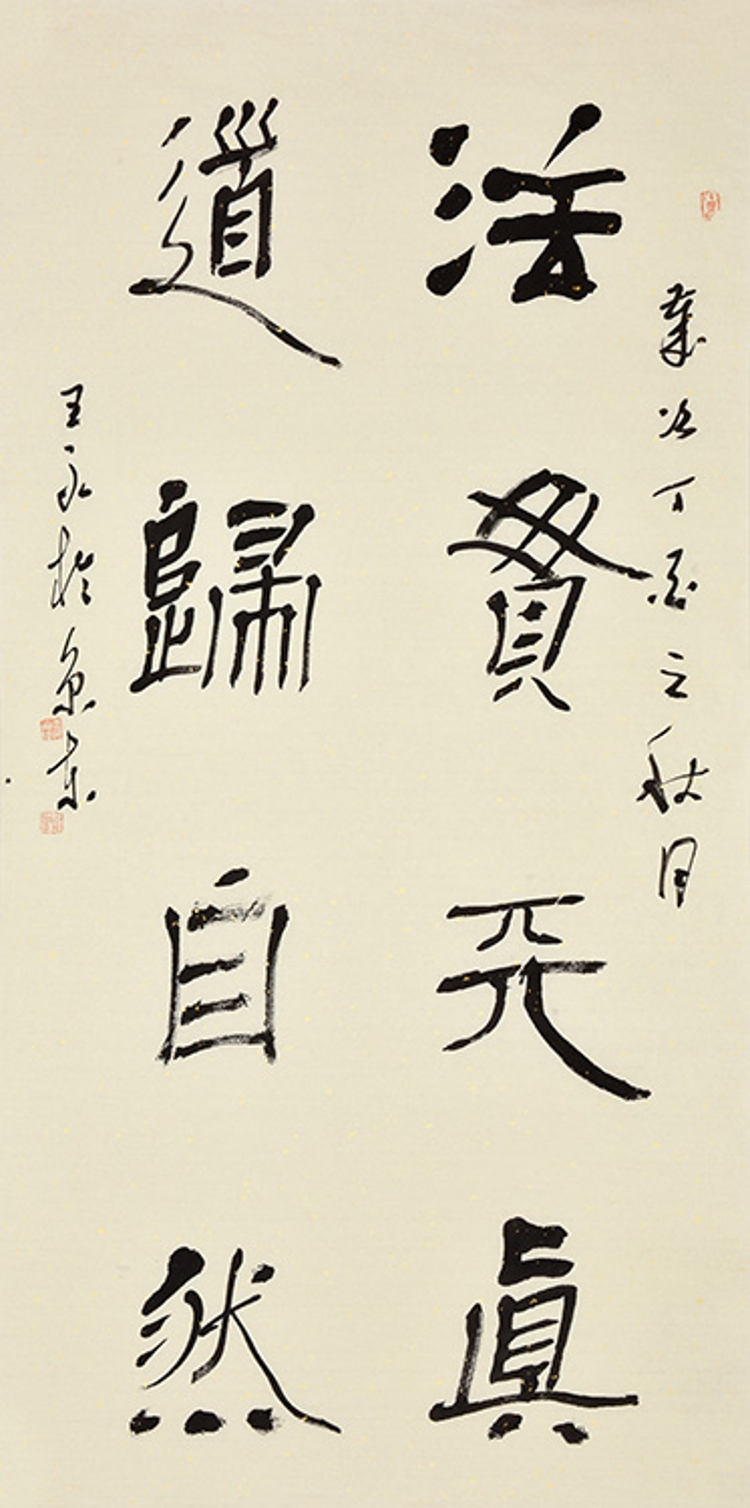 歲次丁酉之秋月
法貴天真
道歸自然
王永於京東